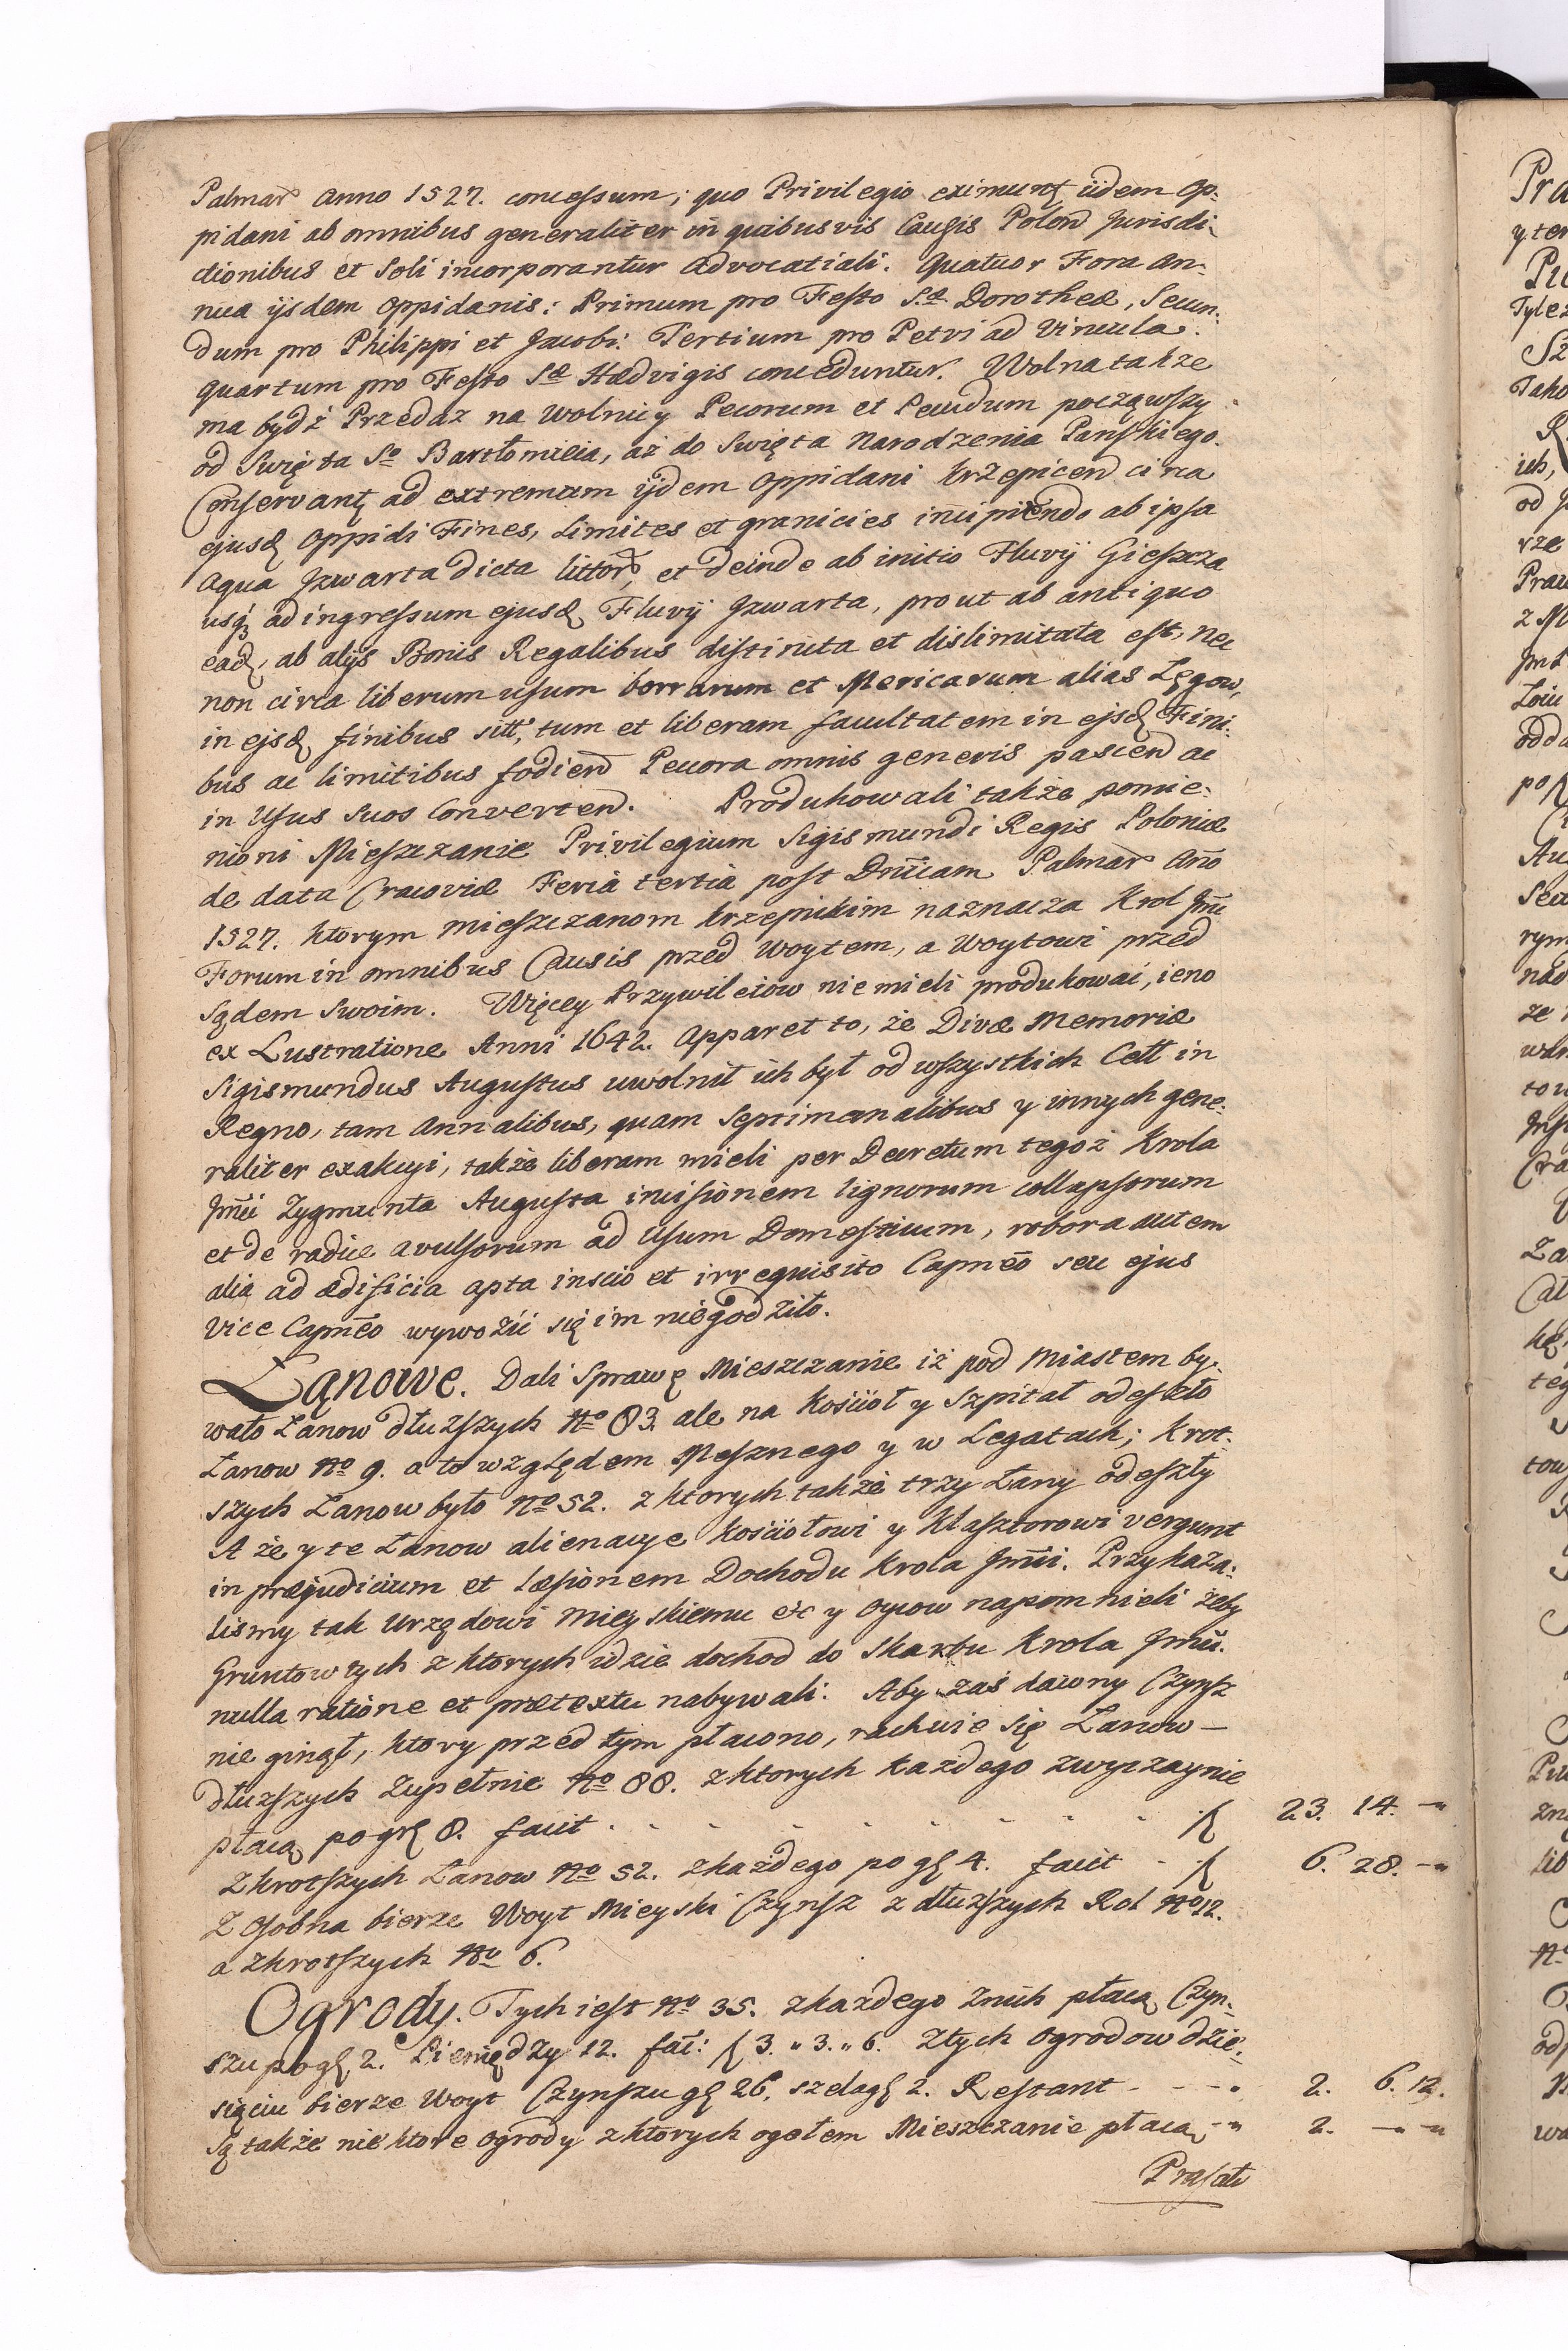 Palmar Anno 1527. concessum; quo Privilegio eximunt iidem Op-
pidani ab omnibus generaliter in quibusvis Causis Polon Jurisdi-
ctionibus et soli incorporantur Advocatiali. Quatuor Fora An-
nua ijsdem Oppidanis: Primum pro Festo S.æ Dorotheæ, Secun-
dum pro Philippi et Jacobi: Tertium pro Petri ad Vincula:
Quartum pro Festo Sæ Hædvigis conceduntur. Wolna także
ma bydź Przedaz na wolnicy Pecorum et Pecudum począwszy
od Swięta So Bartłomieia, aż do Swięta Narodzenia Panskiego.
Conservant ad extremum ijdem Oppidani Krzepicen circa
ejusd Oppidi Fines, Limites et granicies incipiendo ab ipsa
Aqua Szwarta dicta littor, et deinde ab initio Fluvij Gieszcza
usq ad ingressum ejusd Fluvij Szwarta, prout ab antiquo
ead, ab alijs Bonis Regalibus distincta et dislimitata est, nec
non circa liberum usum borrarum et Mericarum alias Lęgow,
in ejsd finibus sitt, tum et liberam facultatem in ejsd Fini-
bus ac limitibus fodien Pecora omnis generis pascen ac
in Usus suos Converten. Produkowali także pomie-
nioni Mieszczanie Privilegium Sigismundi Regis Poloniæ
de data Cracoviæ Feria tertia post Dnicam Palmar Ano
1527. ktorym mieszczanom krzepickim naznacza Krol Jmć
Forum in omnibus Causis przed Woytem, a Woytowi przed
Sądem Swoim. Więcey Przywileiow nie mieli produkować, ieno
ex Lustratione Anni 1642. apparet to, że Divæ Memoriæ
Sigismundus Augustus uwolnił ich był od wszystkich Cell in
Regno, tam Annalibus, quam Septimanalibus y innych gene-
raliter exakcyi, także liberam mieli per Decretum tegoż Krola
Jmci Zygmunta Augusta incisionem lignorum collapsorum
et de radice avulsorum ad Usum Domesticum, robora autem
alia ad ædificia apta inscio et irrequisito Capneo seu ejus
Vice Capneo wywozić się im niegodziło.
Łanowe. Dali Sprawę Mieszczanie iż pod Miastem by-
wało Łanow dłuższych No 83. ale na Kościoł y Szpital odeszło
Łanow No 9. a to względem Mesznego y w Legatach; Krot-
szych Łanow było No 52. z ktorych także trzy Łany odeszły
A że y te Łanow alienacye Kościołowi y Klasztorowi vergunt
in præjudicium et læsionem Dochodu Krola Jmci. Przykaza-
lismy tak Urzędowi Mieyskiemu etc y Oycow napomnieli żeby
Gruntow tych z ktorych idzie dochod do Skarbu Krola Jmci.
nulla ratione et prætextu nabywali. Aby zaś dawny Czynsz
nie ginął, ktory przed tym płacono, rachuie się Łanow
dłuższych zupełnie No 88. z ktorych każdego zwyczaynie
płacą po gr 8. facit 23. 14. -
Z krotszych Łanow No 52. z każdego po gr 4. facit 6. 28. -
Z Osobna bierze Woyt Mieyski Czynsz z dłuższych Rol No 12.
a z krotszych No 6.
Ogrody. Tych iest No 35. z każdego z nich płacą Czyn-
szu po gr 2. Pieniędzy 12. fac: f 3. " 3. " 6. Z tych Ogrodow dzie-
sięciu bierze Woyt Czynszu gr 26, szelag 2. Restant 2. 6. 12.
Są także niektore ogrody z ktorych ogołem Mieszczanie płacą 2. - -